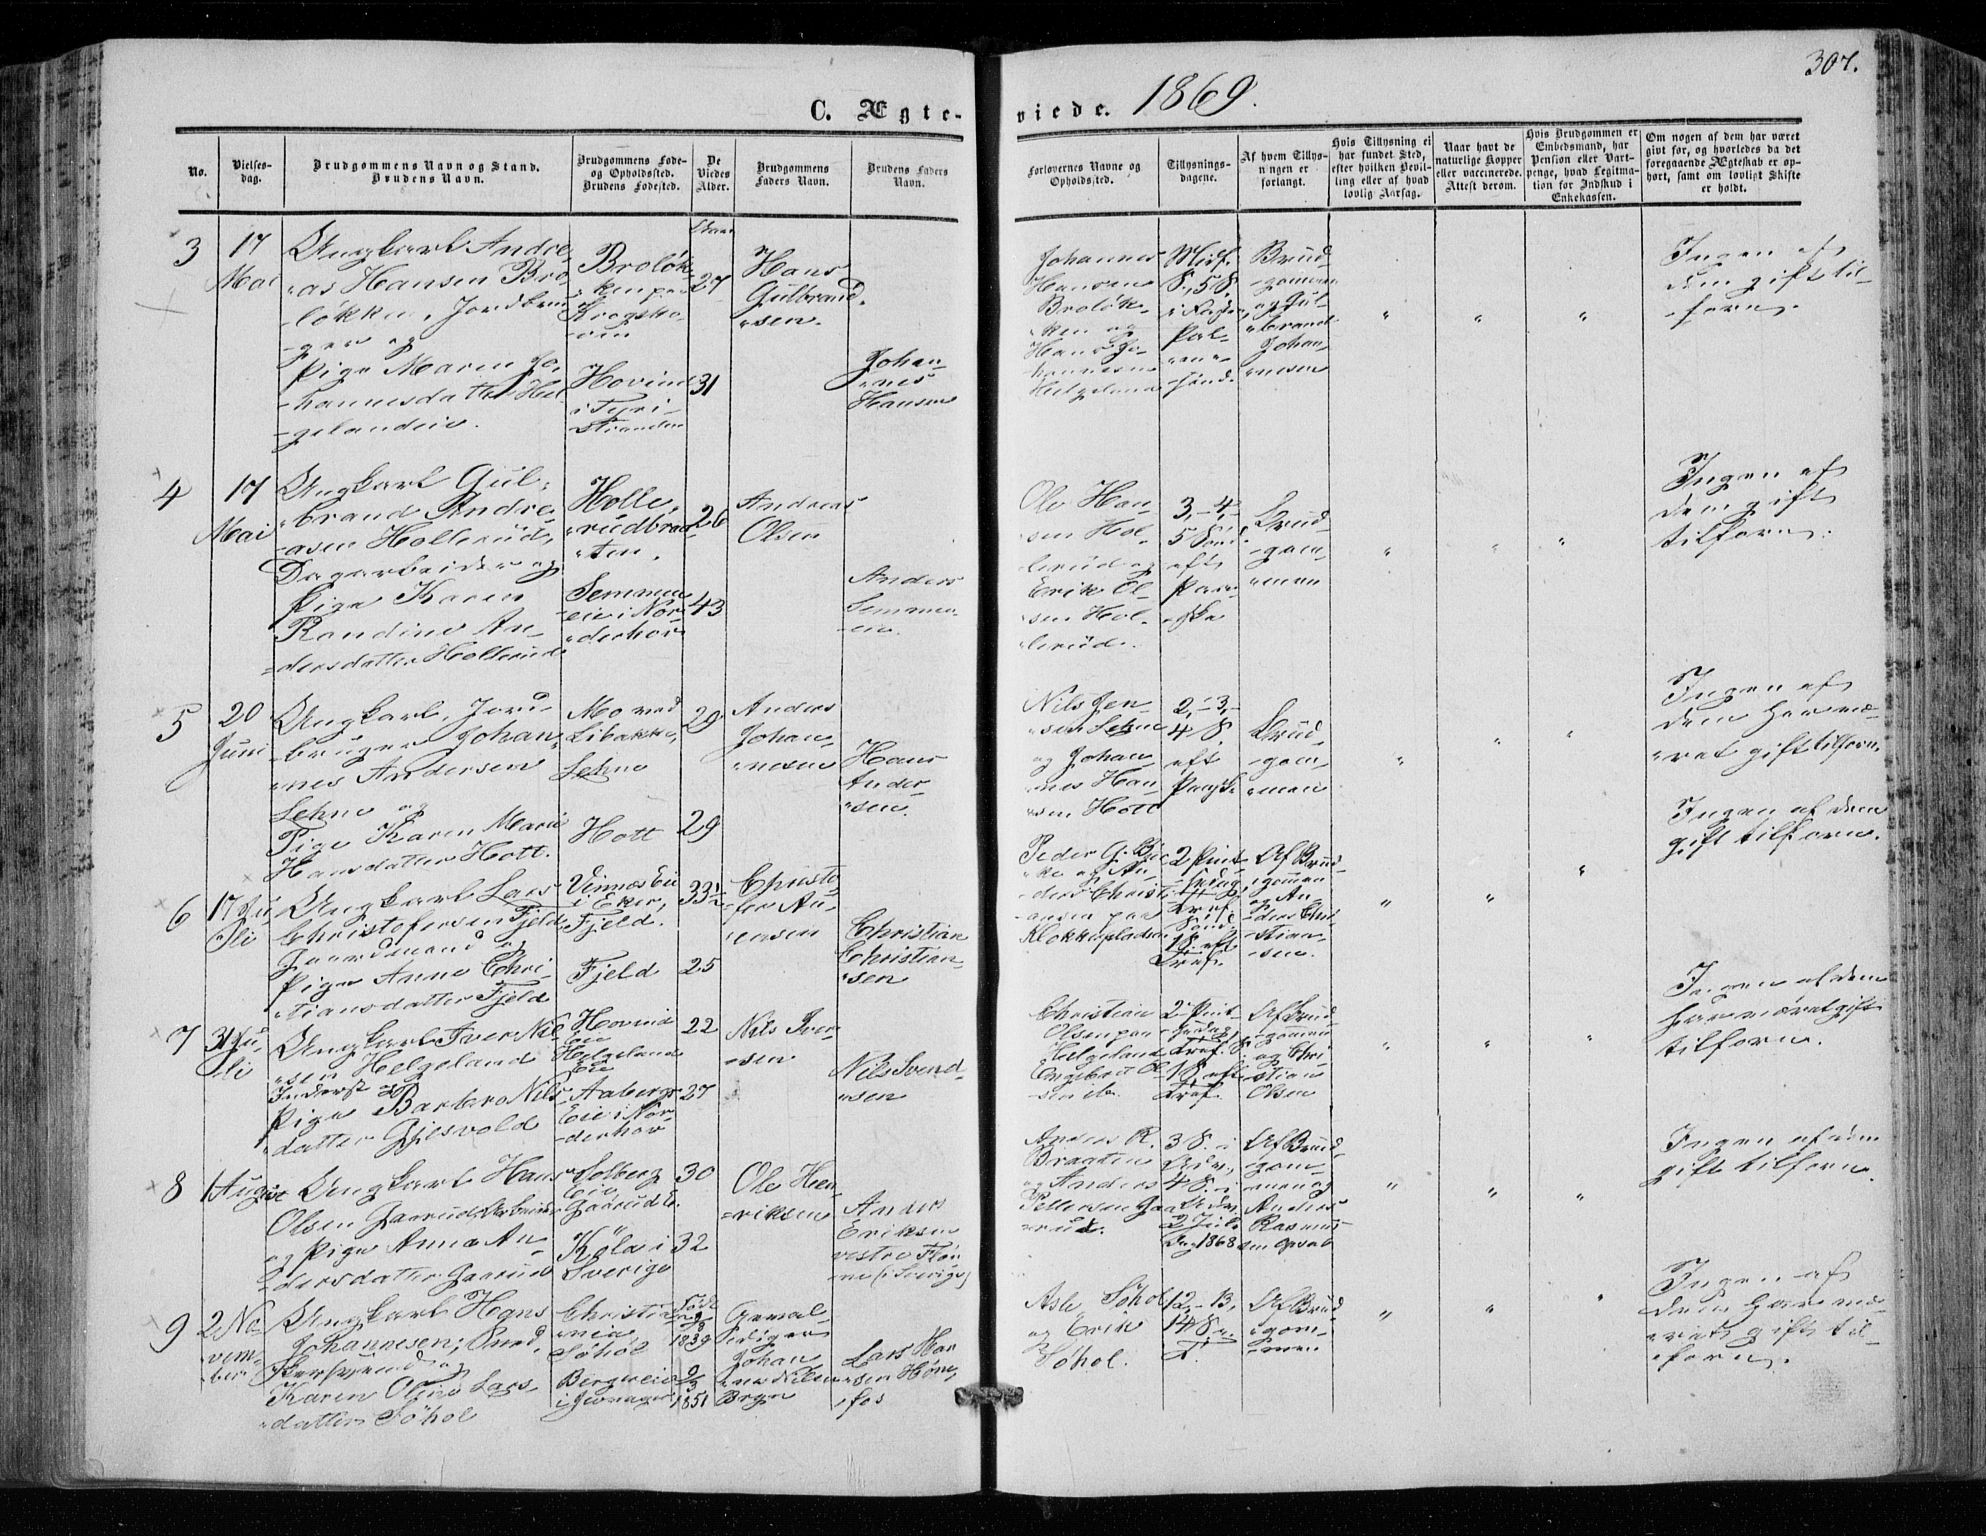 307.
C. Ægte-
viede. 1869.
No.
Vielses-
dag.
Brudgommens Navn og Stand.
Brudens Navn.
Brudgommens Føde-
og Opholdssted.
Brudens Fødested.
De
Viedes
Alder.
Brudgommens
Faders Navn.
Brudens Faders
Navn.
Forlovernes Navne og
Opholdssted.
Tillysnings-
dagene.
Af hvem Tillys-
ningen er
forlangt.
Hvis Tillysning ei
har fundet Sted,
efter hvilken Bevil-
ling eller af hvad
lovlig Aarsag.
Naar havt de
naturlige Kopper
eller vaccinerede.
Attest derom.
Hvis Brudgommen er
Embedsmand, har
Pension eller Vart-
penge, hvad Legitima-
tion for Indskud i
Enkekassen.
Om nogen af dem har været
givt før, og hvorledes da det
foregaaende Ægteskab er op-
hørt, samt om lovligt Skifte
er holdt.
3
17
Mai
Ungkarl Andre-
as Hansen Bro-
løkken, Jordbru-
ger og
Pige Maren Jo-
hannesdatter Hel-
gelandeie.
Broløk-
ken paa
Krogsko-
ven
Hovind
i Tyri-
stranden
27
31
Hans
Gulbrand-
sen.
Johan-
nes
Hansen
Johannes
Hansen
Broløk-
ken og
Hans Jo-
hannesen
Helgeland
Midf.
S., 5 S.
i Faste,
Pal-
me-
sønd.
Brud-
gommen
og Gul-
brand
Johan-
nesen
Ingen af
dem gift til-
forn.
4
17
Mai
Ungkarl Gul-
brand Andre-
asen Hollerud,
Dagarbeider og
Pige Karen
Randine An-
dersdatter Hollerud
Holle-
rudbraa-
ten.
Semmen
eie i Nor-
derhov
26
43
Andreas
Olsen
Anders
Semmen-
eie.
Ole Han-
sen Hol-
lerud og
Erik Ol-
sen Hol-
lerud.
3, 4,
5 Sønd.
eft.
Paa-
ske
Brud-
gom-
men
Ingen af
dem gift
tilforn.
5
20
Juni
Ungkarl, Jord-
bruger Johan-
nes Andersen
Lehne og
Pige Karen Marie
Hansdatter Hott.
Mo ved
Libakke,
Lehne
Hott
29
29
Anders
Johan-
nesen
Hans
Ander-
sen.
Nils Jen-
sen Lehne
og Johan-
nes Han-
sen Hott
2, 3,
4 S.
eft.
Paaske
Brud-
gom-
men
Ingen af
dem har væ-
ret gift tilforn.
6
17 Ju-
li
Ungkarl Lars
Christofersen Fjeld
Gaardmand og
Pige Anne Chri-
stiansdatter Fjeld
Vinnæs Eie
i Eker,
Fjeld.
Fjeld
33½
25
Christo-
fer An-
ensen
Christian
Christian-
sen
Peder G.
og An-
ders Christi-
ansen paa
Klokkerpladsen
2 Pint-
sedag,
Tref.
Sønd.
1 S. eft.
Tref.
Af Brud-
gommen
og An-
ders Chri-
stian-
sen.
Ingen af dem
gift tilforn.
7
31 Ju-
li
Ungkarl Iver Nil-
sen Helgeland
Inderst og
Pige Barbro Nils-
datter Gjesvold
Hovind
Eie
Helgeland
Eie
Aabergs
Eie i Nor-
derhov
22
27
Nils Iver-
sen
Nils Svend-
sen
Christian
Olsen paa
Helgeland
Engebret Ol-
sen ib.
2 Pint-
sedag
Tref. S.
1 S. eft
Tref.
Af Brud-
gommen
og Chri-
stian
Olsen
Ingen af dem
har været gift
tilforn.
8
1 August
Ungkarl Hans
Olsen Gaarud Arbeider
og Pige Anna An-
dersdatter Gaarud
Solberg
Eie
Gaarud E.
Köla i
Sverige
30
32
Ole Hen-
riksen
Anders
Eriksen
vestre
(i Sverige)
Anders R.
Bragten
og Anders
Pettersen Gaa-
rud.
3 S. i
Adv.,
4 S. i
Adv.
2 Jule
dag 1868
Af Brud-
gom-
men og
Anders
Rasmus-
sen
Ingen af dem
gift tilforn.
9
2 No-
vem-
ber
Ungkarl Hans
Johannesen, Sned-
kersvend og
Karen Oline Lars-
datter Søhol
Christia-
nia
Søhol
Bergereie
i Jevnaker
Født
1839
1851
Geval-
diger
Johan-
nes Nilsen
Bryn
Lars Han-
sen Høne-
fos
Asle Søhol
og Erik
Søhol.
12, 13,
14 S. e.
T.
Af Brud-
gom-
men
Ingen af
dem har væ-
ret gift til-
forn.